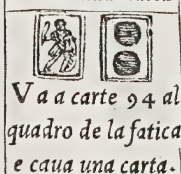 Va a carte 94 al
quadro de la fatica
e caua una carta.